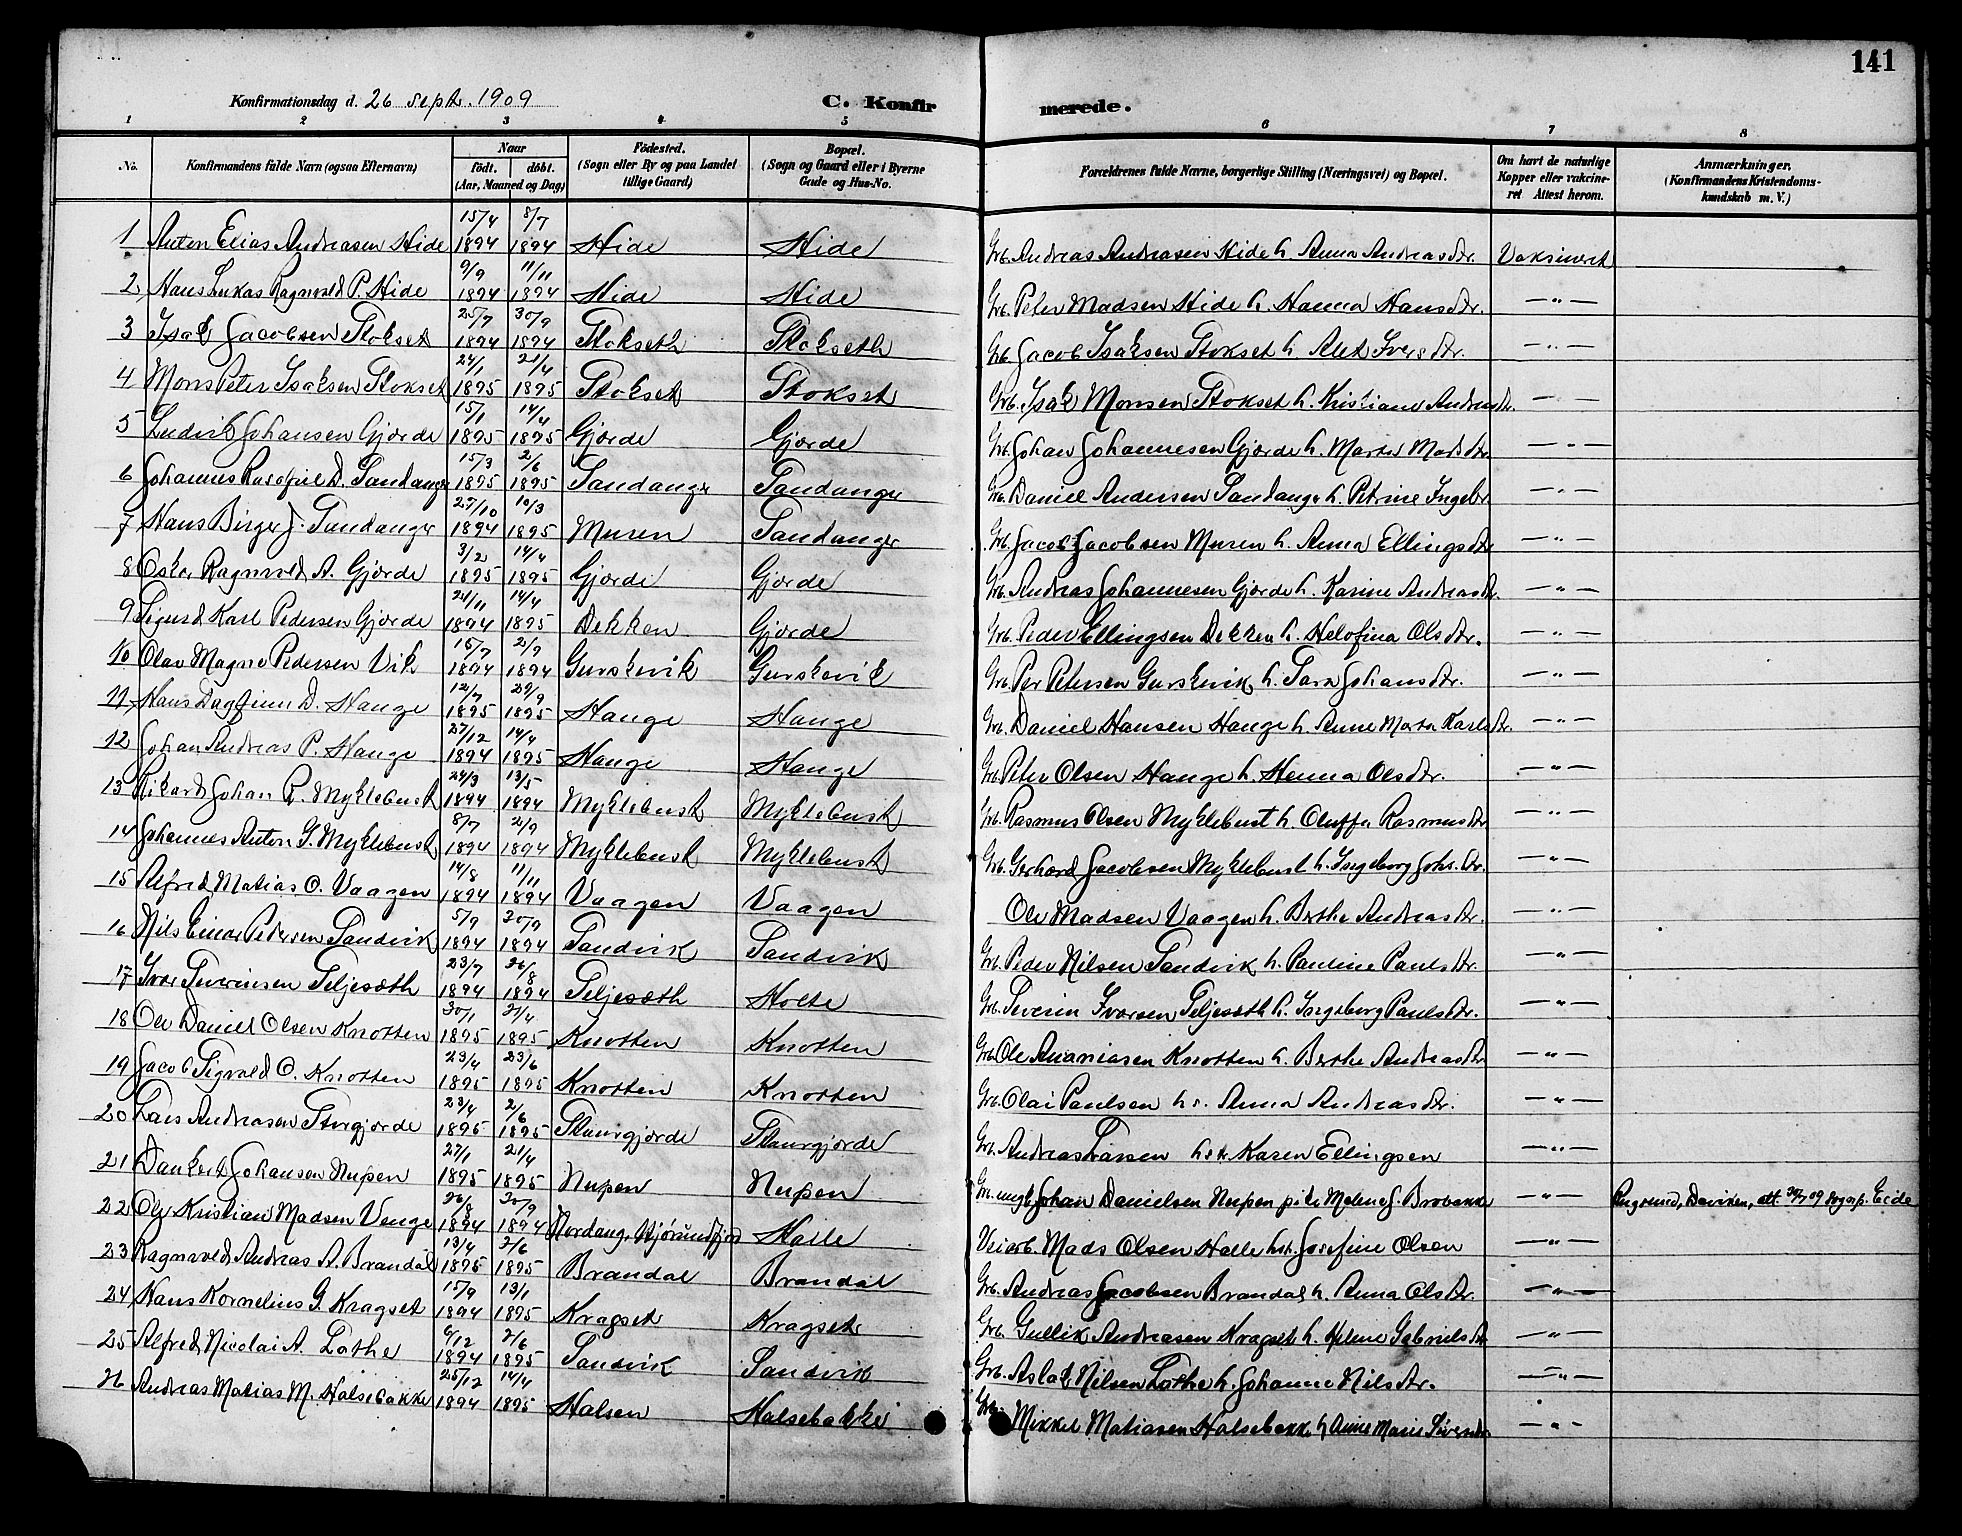 141
Konfirmationsdag d. 26 Sept. 1909 C. Konfirmerede.
1 2 3 4 5 6 7 8
No. Konfirmandens fulde Navn (ogsaa Efternavn) Naar födt. döbt. (Aar, Maaned og Dag) Födested. (Sogn eller By og paa Landet tillige Gaard) Bopæl. (Sogn og Gaard eller i Byerne Gade og Hus-No. Forældrenes fulde Navne, borgerlige Stilling (Næringsvei) og Bopæl. Om havt de naturlige Kopper eller vakcineret Attest herom. Anmærkninger. (Konfirmandens Kristendomskundskab m. V.)
1 Anton Elias Andreasen Hide 15/4 1894 8/7 1894 Hide Hide Grb. Andreas Andreasen Hide h. Anna Andreasdtr. Vaksineret
2 Hans Lukas Ragnvald P. Hide 9/9 1894 11/11 1894 Hide Hide Grb. Peter Madsen Hide h. Hanna Hansdtr. —"—
3 Isak Jacobsen Stokset 25/7 1894 30/9 1894 Stokseth Stokseth Grb. Jacob Isaksen Stokset h. Alet Iversdtr. —"—
4 Mons Peter Isaksen Stokset 24/1 1895 21/4 1895 Stokset Stokset Grb. Isak Monsen Stokset h. Kristiane Andreasdtr. —"—
5 Ludvik Johansen Gjörde 15/1 1895 14/4 1895 Gjörde Gjörde Grb. Johan Johannesen Gjörde h. Marte Madsdtr —"—
6 Johannes D. Sandanger 15/3 1895 2/6 1895 Sandanger Sandanger Grb. Daniel Andersen Sandanger h. Petrine —"—
7 Hans Birger J. Sandanger 27/10 1894 10/3 1895 Muren Sandanger Grb. Jacob Jacobsen Muren h. Anna Ellingsdtr —"—
8 Oskar Ragnvald A. Gjörde 3/2 1895 14/4 1895 Gjörde Gjörde Grb. Andreas Johannesen Gjörde h. Karine Andreasdtr. —"—
9 Sigurd Karl Pedersen Gjörde 21/11 1894 14/4 1895 Dekken Gjörde Grb. Peder Ellingsen Dekken h. Olsdtr. —"—
10 Olav Magne Pedersen Vik 15/7 1894 2/9 1894 Gurskevik Gurskevik Grb. Per Petersen Gurskevik h. Sara Johansdtr. —"—
11 Hans Dagfinn D. Hauge 12/7 1895 29/9 1895 Hauge Hauge Grb. Daniel Hansen Hauge h. Anne Marta Karlsdtr. —"—
12 Johan Andreas P. Hauge 27/12 1894 14/4 1895 Hauge Hauge Grb. Peter Olsen Hauge h. Hanna Olsdtr. —"—
13 Rikard Johan R. Myklebust 24/3 1894 13/5 1894 Myklebust Myklebust Grb. Rasmus Olsen Myklebust h. Oluffa Rasmusdtr —"—
14 Johannes Anton G. Myklebust 8/7 1894 2/9 1894 Myklebust Myklebust Grb. Gerhard Jacobsen Myklebust h. Ingeborg Johs.dtr. —"—
15 Alfred Matias O. Vaagen 14/8 1894 11/11 1894 Vaagen Vaagen Ole Madsen Vaagen h. Berthe Andreasdtr. —"—
16 Nils Einar Pedersen Sandvik 5/9 1894 30/9 1894 Sandvik Sandvik Grb. Peder Nilsen Sandvik h. Pauline Paulsdtr. —"—
17 Ivar Severinsen Seljesæth 23/7 1894 26/8 1894 Seljesæth Holte Grb. Severin Ivarsen Seljesæth h. Ingeborg Paulsdtr. —"—
18 Ole Daniel Olsen Knotten 30/1 1895 21/4 1895 Knotten Knotten Grb. Ole Ananiasen Knotten h. Berthe Andreasdtr —"—
19 Jacob Sigvald O. Knotten 23/4 1895 23/6 1895 Knotten Knotten Grb. Olai Paulsen h. Anna Andreasdtr. —"—
20 Lars Andreasen Sturgjørde 23/4 1895 2/6 1895 Staurgjørde Staurgjørde Grb. Andreas Larsen Karen Ellingsen —"—
21 Dankert Johansen Nupen 27/1 1895 21/4 1895 Nupen Nupen Johan Danielsen Nupen Malene J. Brobakke —"— Daviken, att.
22 Ole Kristian Madsen Venge 26/8 1894 30/9 1894 Nordang, Hjørundfjord Halle Veiarb. Mads Olsen Halle hst. Josefine Olsen —"—
23 Ragnvald Andreas A. Brandal 13/4 1895 2/6 1895 Brandal Brandal Grb. Andreas Jacobsen Brandal h. Anna Olsdtr. —"—
24 Hans Kornelius G. Kragset 15/9 1894 13/1 1895 Kragset Kragset Grb. Gullik Andreasen Kragset h. Helene Gabrielsdtr —"—
25 Alfred Nicolai A. Lothe 6/12 1894 2/6 1895 Sandvik Sandvik Grb. Aslak Nilsen Lothe h. Johanne Nilsdtr. —"—
26 Andreas Matias M. Halsebakke 25/12 1894 14/4 1895 Halsen Halsebakke Grb. Mikkel Matiasen Halsebakk h. Anne Marie —"—